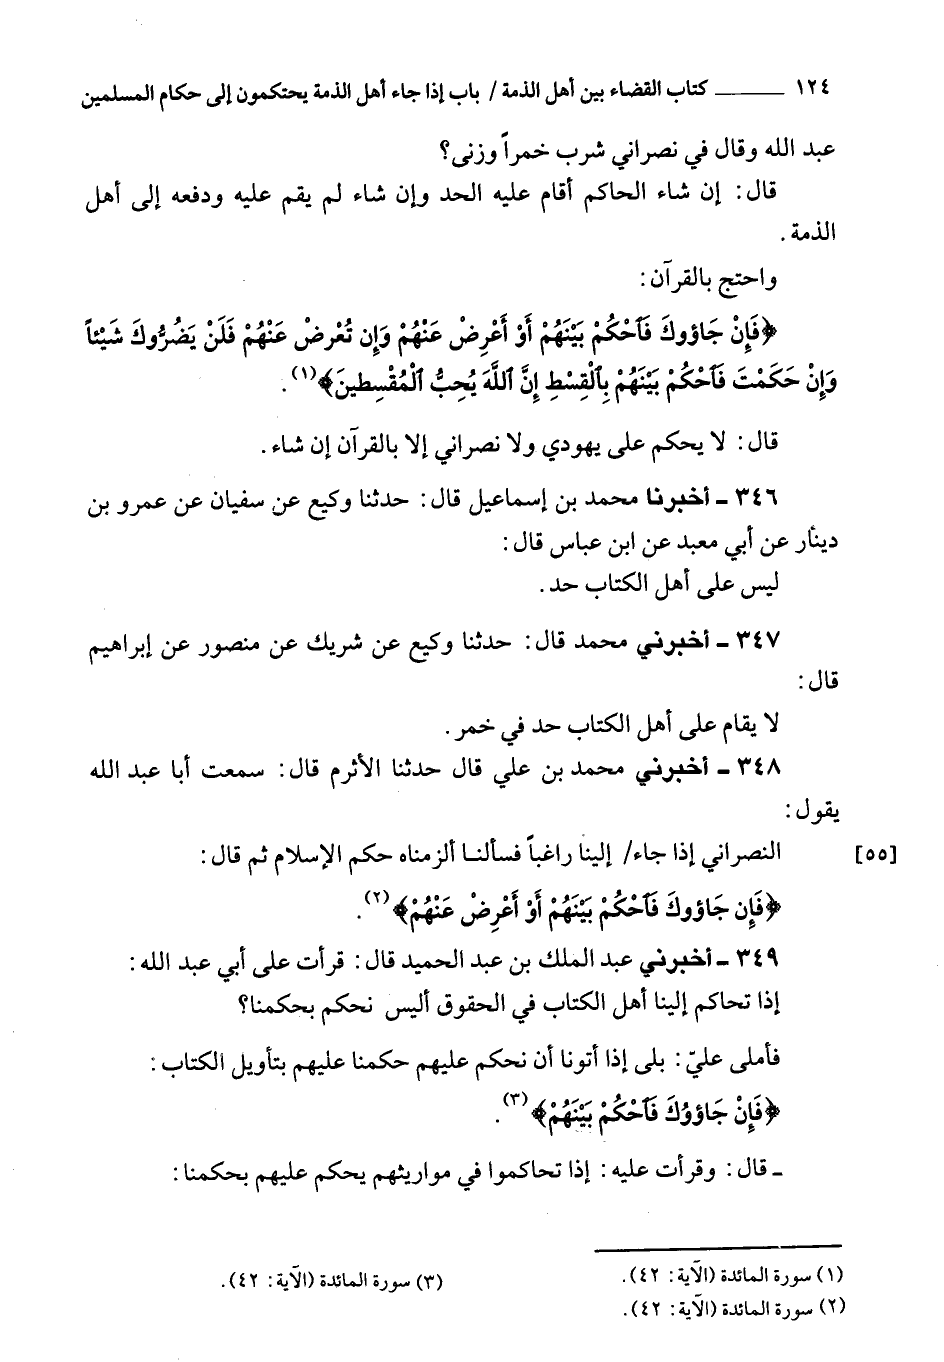 ١٢٤ ــــــــ كتاب القضاء بين أهل الذمة / باب إذا جاء أهل الذمة يحتكمون إلى حكام المسلمين
عبد الله وقال في نصراني شرب خمراً وزنى؟
قال: إن شاء الحاكم أقام عليه الحد وإن شاء لم يقم عليه ودفعه إلى أهل
الذمة.
واحتج بالقرآن:
﴿فَإِنْ جَاؤوكَ فَٱحْكُمْ بَيْنَهُمْ أَوْ أَعْرِضْ عَنْهُمْ وَإِن تُعْرِضْ عَنْهُمْ فَلَنْ يَضُرُّوكَ شَيْئاً
وَإِنْ حَكَمْتَ فَٱحْكُمْ بَيْنَهُمْ بِٱلْقِسْطِ إِنَّ ٱللَّهَ يُحِبُّ ٱلْمُقْسِطِينَ﴾(١).
قال: لا يحكم على يهودي ولا نصراني إلا بالقرآن إن شاء.
٣٤٦ ـ أخبرنا محمد بن إسماعيل قال: حدثنا وكيع عن سفيان عن عمرو بن
دينار عن أبي معبد عن ابن عباس قال:
ليس على أهل الكتاب حد.
٣٤٧ ـ أخبرني محمد قال: حدثنا وكيع عن شريك عن منصور عن إبراهيم
قال:
لا يقام على أهل الكتاب حد في خمر.
٣٤٨ ـ أخبرني محمد بن علي قال حدثنا الأثرم قال: سمعت أبا عبد الله
يقول:
النصراني إذا جاء/ إلينا راغباً فسألنا ألزمناه حكم الإسلام ثم قال: [٥٥]
﴿فَإِن جَاؤوكَ فَٱحْكُمْ بَيْنَهُمْ أَوْ أَعْرِضْ عَنْهُمْ﴾(٢).
٣٤٩ ـ أخبرني عبد الملك بن عبد الحميد قال: قرأت على أبي عبد الله:
إذا تحاكم إلينا أهل الكتاب في الحقوق أليس نحكم بحكمنا؟
فأملى عليّ: بلى إذا أتونا أن نحكم عليهم حكمنا عليهم بتأويل الكتاب:
﴿فَإِنْ جَاؤوُكَ فَٱحْكُمْ بَيْنَهُمْ﴾(٣).
ـ قال: وقرأت عليه: إذا تحاكموا في مواريثهم يحكم عليهم بحكمنا:
(١) سورة المائدة (الآية: ٤٢).
(٢) سورة المائدة (الآية: ٤٢).
(٣) سورة المائدة (الآية: ٤٢).